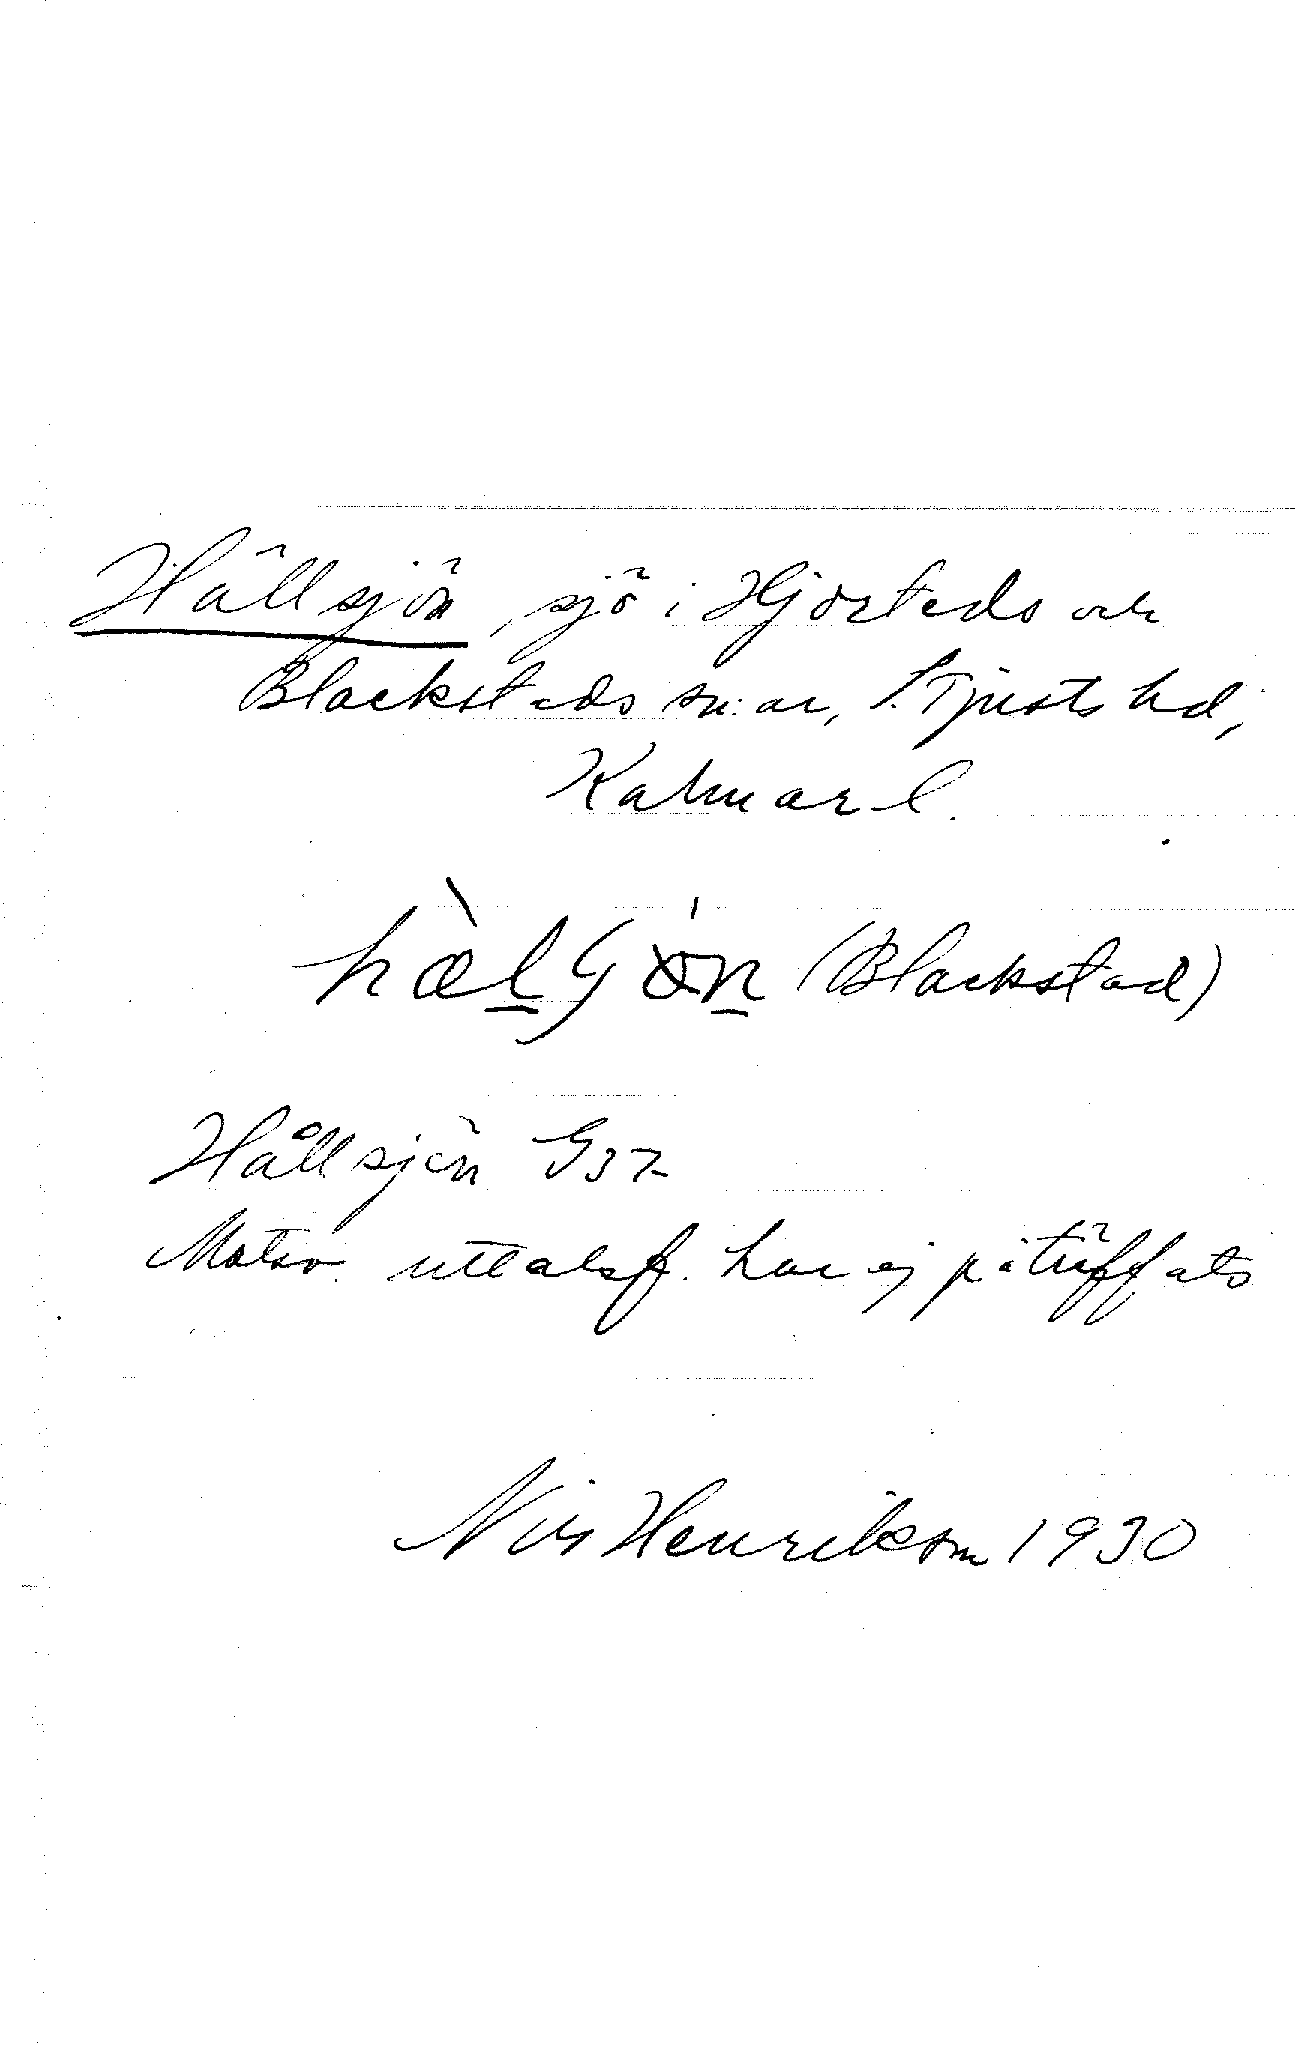 Hällsjön, sjö i Hjorteds och
Blackstads sn:ar, S. Tjusts hd,
Kalmar l.
(Blackstad)
Hållsjön G37
Motsv. uttalsf. har ej påträffats
Nils Henrikson 1930